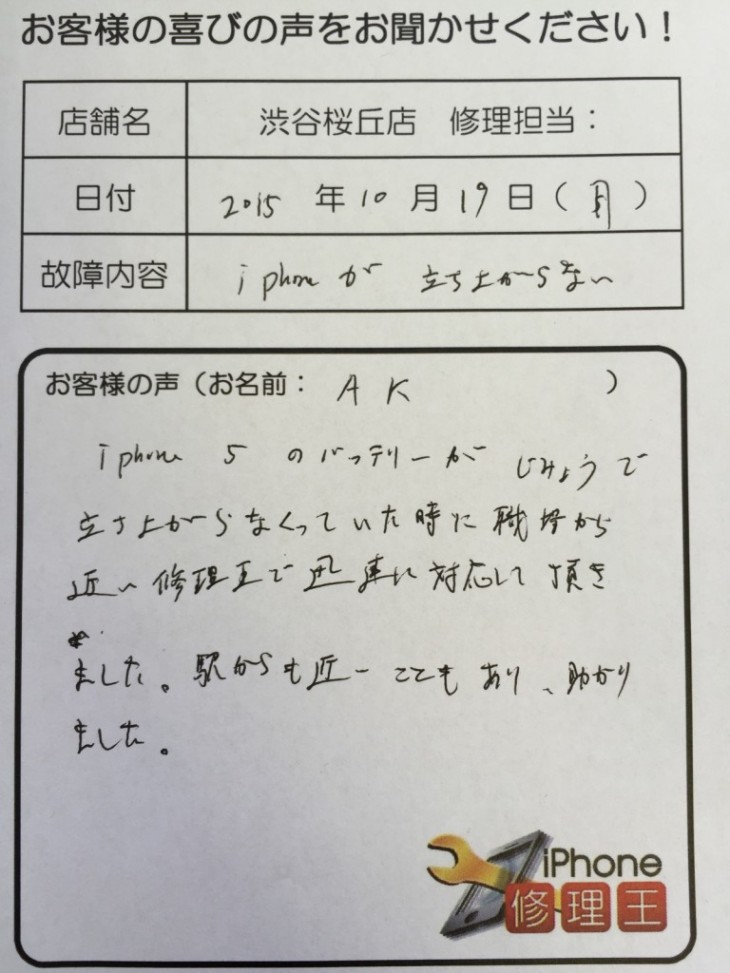 お客様の喜びの声をお聞かせください！
店舗名 渋谷桜丘店 修理担当：
日付 2015 年 10 月 19 日 ( 月 )
故障内容 iphoneが 立ち上がらない
お客様の声（お名前： A K ）
iphone 5 のバッテリーが じみょうで
立ち上がらなくっていた時に 職場から
近い 修理王で 迅速に 対応して 頂き
ました。駅からも近いこともあり、助かり
ました。
iPhone
修理王